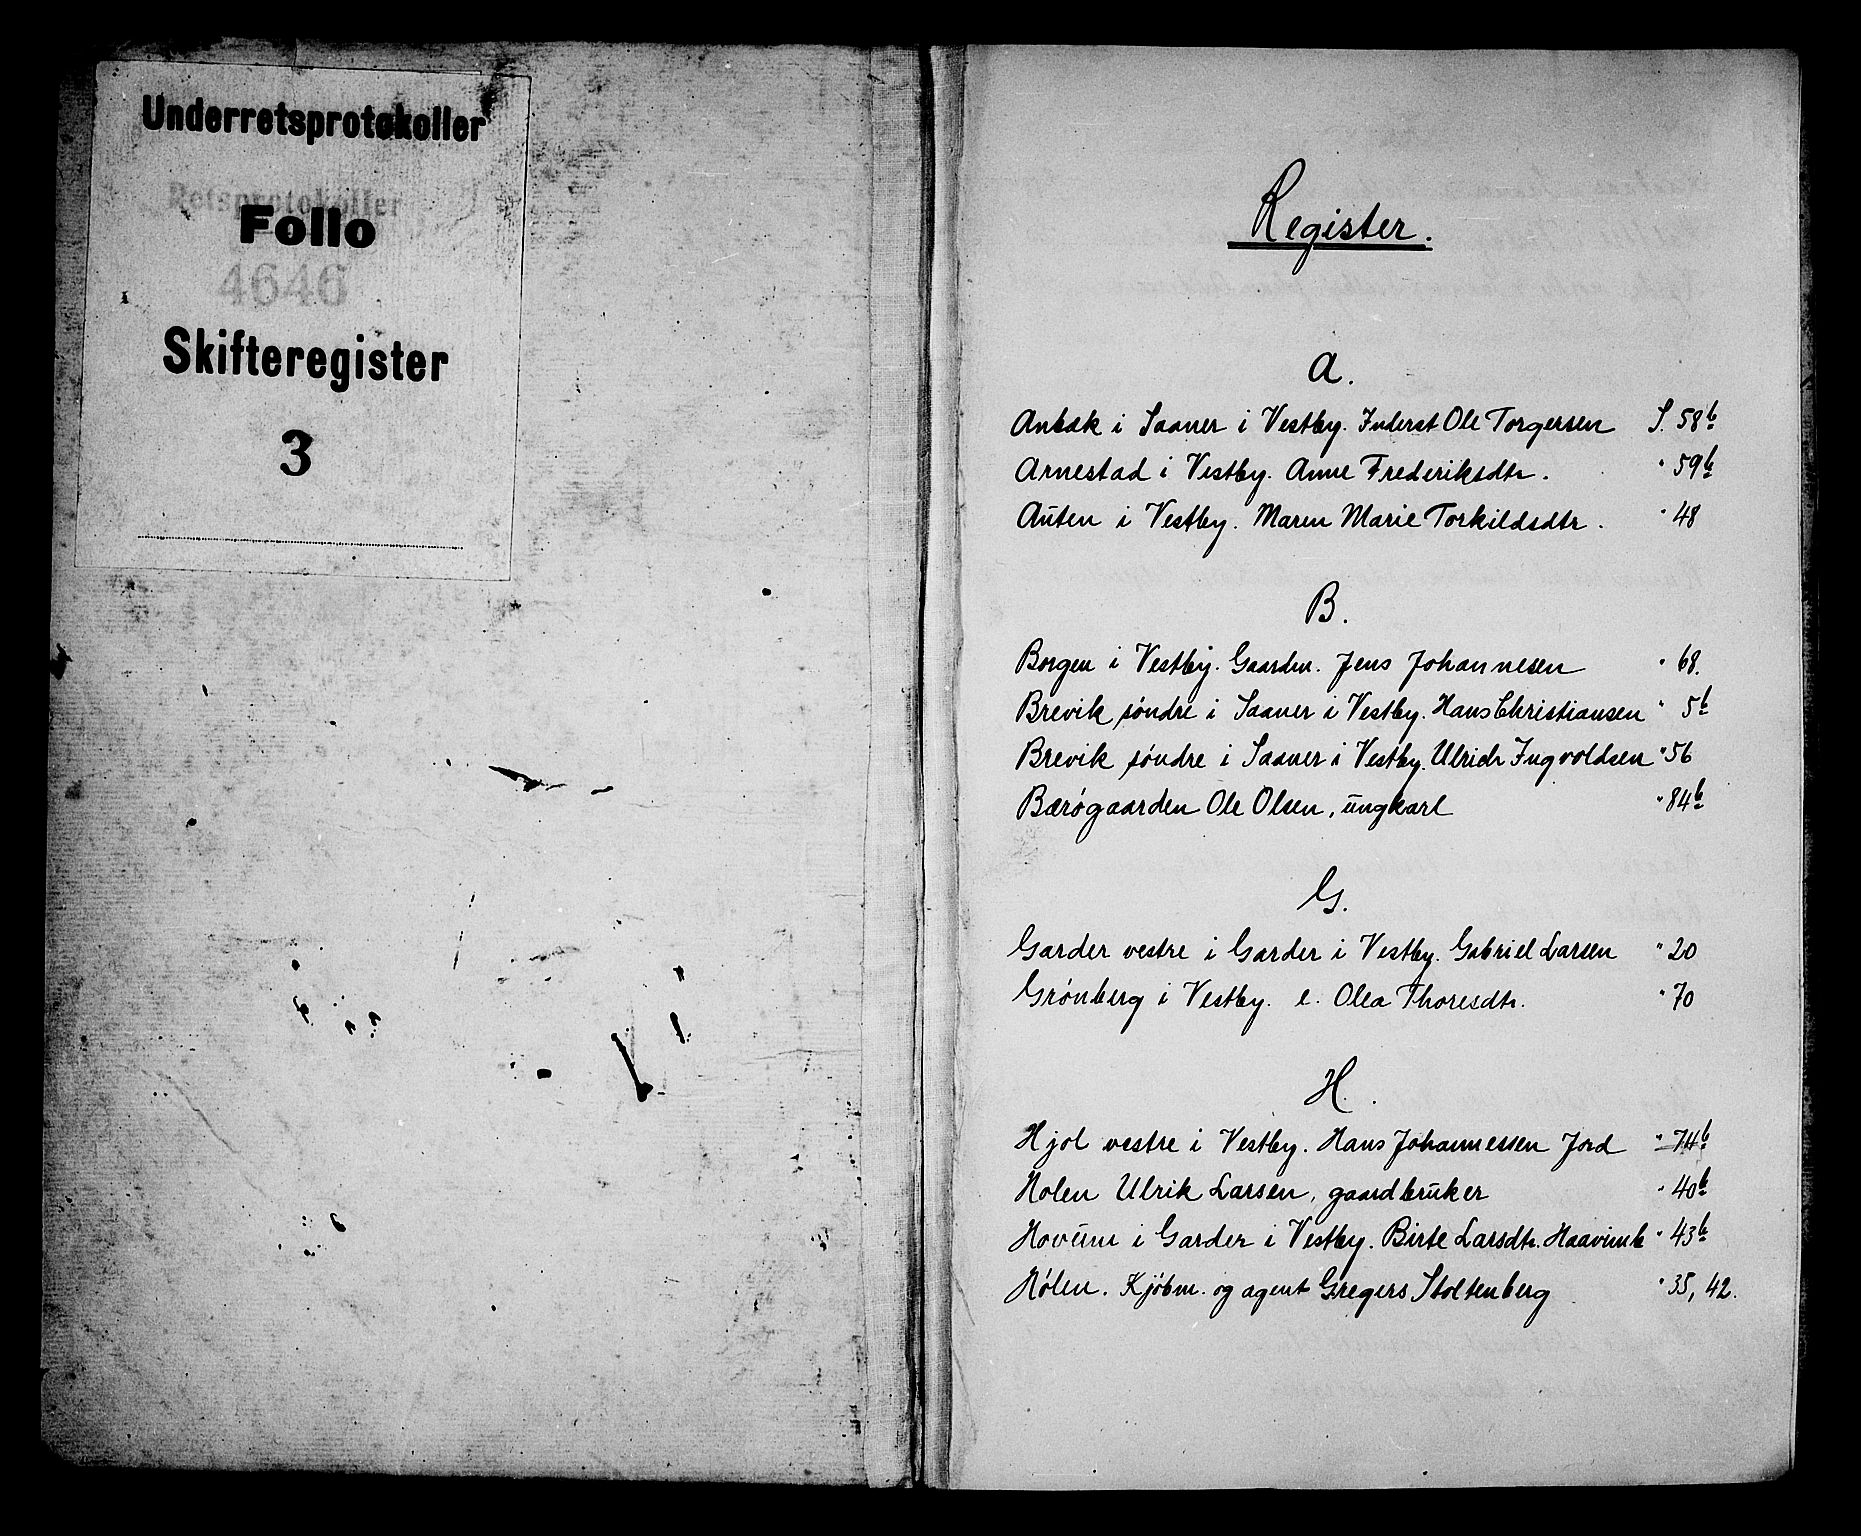 Underretsprotokoller
Retsprotokoller
Follo
4646
Skifteregister
3
Register.
A.
Anbæk i Saaner i Vestby. Inderst Ole Torgersen S. 58b
Arnestad i Vestby. Anne Frederiksdtr. " 59b
Auten i Vestby. Maren Marie Torkildsdtr. " 48
B.
Borgen i Vestby. Gaardm. Jens Johannesen " 68.
Brevik søndre i Saaner i Vestby. Hans Christiansen " 5b
Brevik søndre i Saaner i Vestby. Ulrich Ingvoldsen " 56
Bærøgaarden Ole Olsen, ungkarl " 84b
G.
Garder vestre i Garder i Vestby. Gabriel Larsen " 20
Grønberg i Vestby. e. Olea Thoresdtr. " 70
H.
Hjol vestre i Vestby. Hans Johannessen Jord " 74b
Holen Ulrik Larsen, gaardbruker " 40b
Hovum i Garder i Vestby. Birte Larsdtr. " 43b
Hølen. Kjøbm. og agent Gregers Stoltenberg " 35, 42.